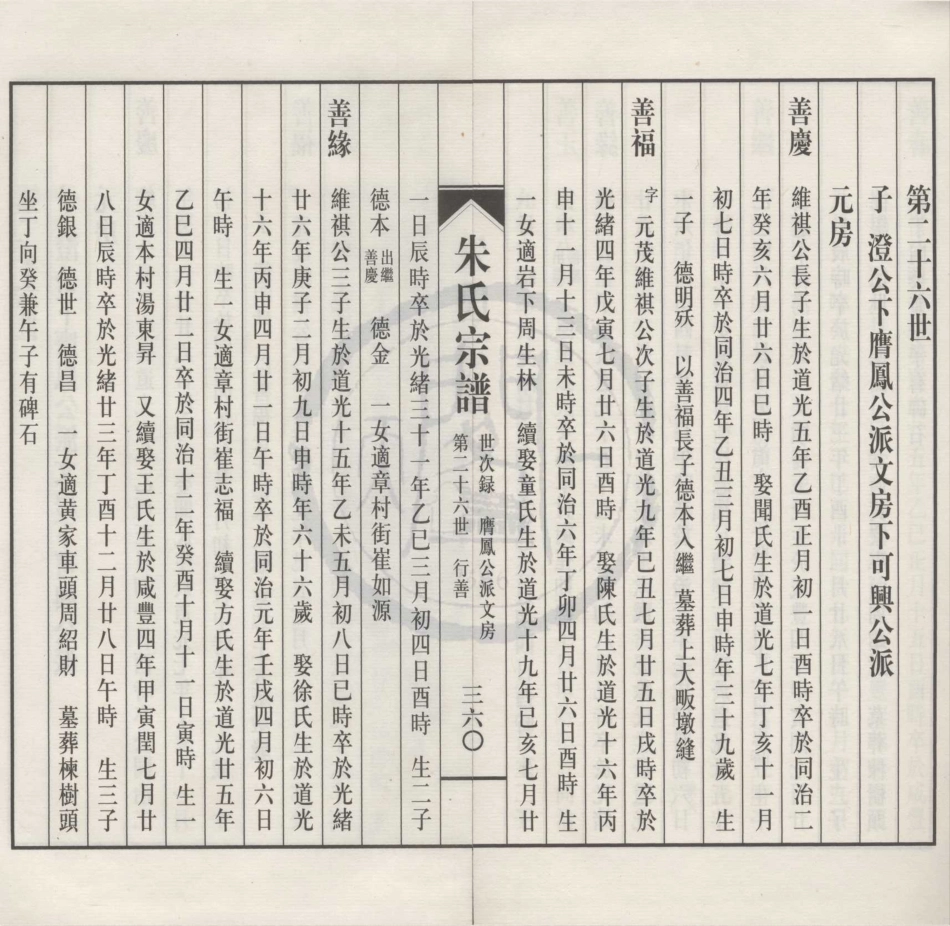 第二十六世
子　澄公下膺鳳公派文房下可興公派
元房
善慶　維祺公長子生於道光五年乙酉正月初一日酉時卒於同治二
年癸亥六月廿六日巳時　娶聞氏生於道光七年丁亥十一月
初七日時卒於同治四年乙丑三月初七日申時年三十九歲　生
一子　德明殀　以善福長子德本入繼　墓葬上大畈墩縫
善福　字　元茂維祺公次子生於道光九年已丑七月廿五日戌時卒於
光緒四年戊寅七月廿六日酉時　娶陳氏生於道光十六年丙
申十一月十三日未時卒於同治六年丁卯四月廿六日酉時　生
一女適岩下周生林　續娶童氏生於道光十九年已亥七月廿
朱氏宗譜　世次録　膺鳳公派文房
第二十六世　行善　三六〇
一日辰時卒於光緒三十一年乙已三月初四日酉時　生二子
德本　出繼善慶　德金　一女適章村街崔如源
善緣　維祺公三子生於道光十五年乙未五月初八日已時卒於光緒
廿六年庚子二月初九日申時年六十六歲　娶徐氏生於道光
十六年丙申四月廿一日午時卒於同治元年壬戌四月初六日
午時　生一女適章村街崔志福　續娶方氏生於道光廿五年
乙巳四月廿二日卒於同治十二年癸酉十月十一日寅時　生一
女適本村湯東昇　又續娶王氏生於咸豐四年甲寅閏七月廿
八日辰時卒於光緒廿三年丁酉十二月廿八日午時　生三子
德銀　德世　德昌　一女適黄家車頭周紹財　墓葬楝樹頭
坐丁向癸兼午子有碑石